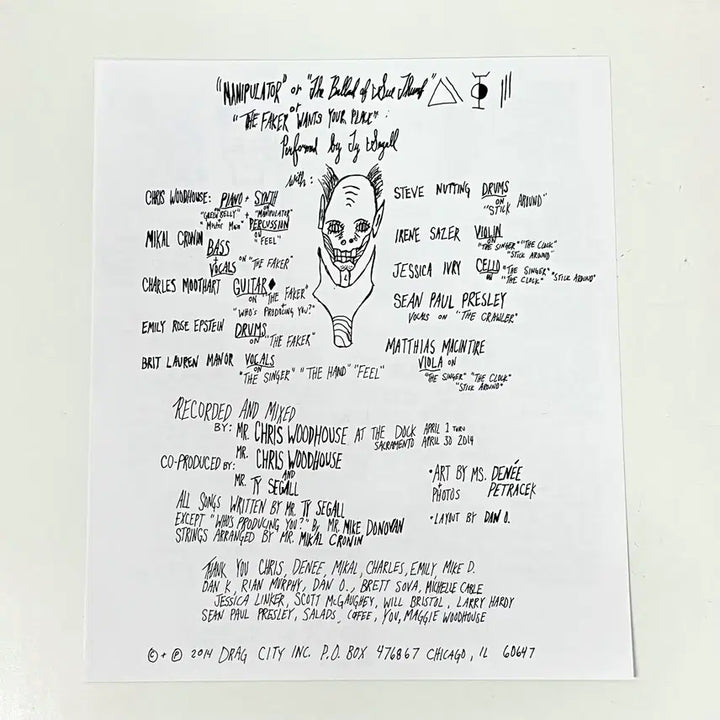 "MANIPULATOR" or "The Ballad of Sue Thumb"
or
"THE FAKER WANTS YOUR PLACE":
Performed by Ty Segall
with:
CHRIS WOODHOUSE: PIANO + SYNTH
ON ON
"GREEN BELLY" + "MANIPULATOR"
"Mister Main" PERCUSSION
ON "FEEL"
MIKAL CRONIN BASS
+
VOCALS ON "THE FAKER"
CHARLES MOOTHART GUITAR
ON "THE FAKER"
+
"WHO'S PRODUCING YOU?"
EMILY ROSE EPSTEIN DRUMS
ON "THE FAKER"
BRIT LAUREN MANOR VOCALS
ON
"THE SINGER" "THE HAND" "FEEL"
STEVE NUTTING DRUMS
ON
"STICK AROUND"
IRENE SAZER VIOLIN
ON
"THE SINGER" "THE CLOCK"
"STICK AROUND"
JESSICA IVRY CELLO ON "THE SINGER"
"THE CLOCK" "STICK AROUND"
SEAN PAUL PRESLEY
VOCALS ON "THE CRAWLER"
MATTHIAS MACINTIRE
VIOLA ON
"THE SINGER" "THE CLOCK"
"STICK AROUND"
RECORDED AND MIXED
BY: MR. CHRIS WOODHOUSE AT THE DOCK APRIL 1 THRU
SACRAMENTO APRIL 30 2014
CO-PRODUCED BY: MR. CHRIS WOODHOUSE
AND
MR. TY SEGALL
•ART BY MS. DENÉE
+
PHOTOS PETRACEK
•LAYOUT BY DAN O.
ALL SONGS WRITTEN BY MR TY SEGALL
EXCEPT "WHO'S PRODUCING YOU?" By MR. MIKE DONOVAN
STRINGS ARRANGED BY MR. MIKAL CRONIN
THANK YOU CHRIS, DENÉE, MIKAL, CHARLES, EMILY MIKE D.
DAN K, RIAN MURPHY, DAN O., BRETT SOVA, MICHELLE CABLE
JESSICA LINKER, SCOTT McGAUGHEY, WILL BRISTOL, LARRY HARDY
SEAN PAUL PRESLEY, SALADS, COFEE, YOU, MAGGIE WOODHOUSE
© + ℗ 2014 DRAG CITY INC. P.O. BOX 476867 CHICAGO, IL 60647